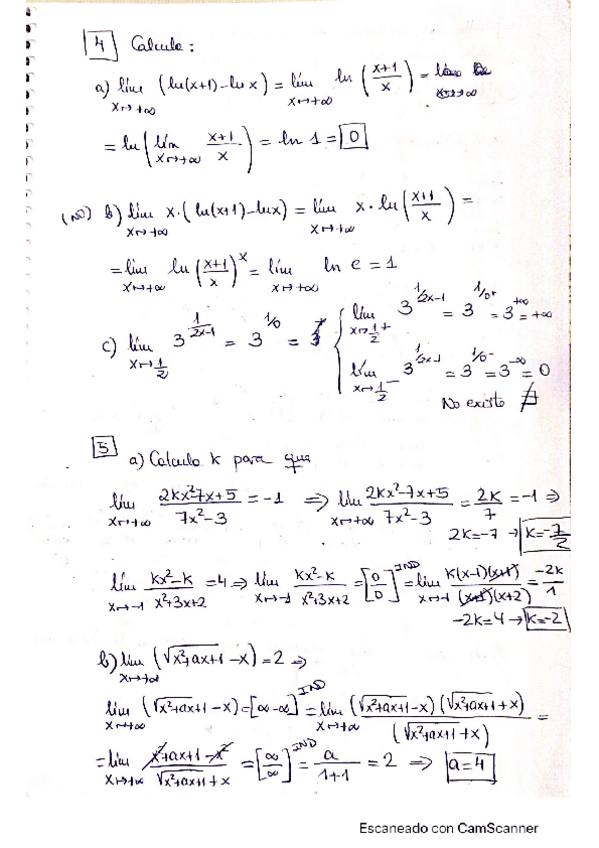 4 Calcula:
a) lím x→+∞ (ln(x+1)-ln x) = lím x→+∞ ln((x+1)/x) =
= ln(lím x→+∞ (x+1)/x) = ln 1 = 0
(NO) b) lím x→+∞ x·(ln(x+1)-lnx) = lím x→+∞ x·ln((x+1)/x) =
= lím x→+∞ ln((x+1)/x)^x = lím x→+∞ ln e = 1
c) lím x→1/2 3^(1/(2x-1)) = 3^(1/0) =
lím x→1/2+ 3^(1/2x-1) = 3^(1/0+) = 3^(+∞) = +∞
lím x→1/2- 3^(1/2x-1) = 3^(1/0-) = 3^(-∞) = 0
No existe ∄
5
a) Calcula k para que
lím x→+∞ (2kx²-7x+5)/(7x²-3) = -1 ⇒ lím x→+∞ (2kx²-7x+5)/(7x²-3) = 2k/7 = -1 ⇒
2k=-7 → k=-7/2
lím x→-1 (kx²-k)/(x²+3x+2) = 4 ⇒ lím x→-1 (kx²-k)/(x²+3x+2) = [0/0]^IND = lím x→-1 k(x-1)(x+1)/((x+1)(x+2)) = -2k/1
-2k=4 → k=-2
b) lím x→+∞ (√(x²+ax+1) - x) = 2 ⇒
lím x→+∞ (√(x²+ax+1) - x) = [∞-∞]^IND = lím x→+∞ (√(x²+ax+1) - x)(√(x²+ax+1) + x)/(√(x²+ax+1) + x) =
= lím x→+∞ (x²+ax+1-x²)/(√(x²+ax+1) + x) = [∞/∞]^IND = a/(1+1) = 2 ⇒ a=4
Escaneado con CamScanner